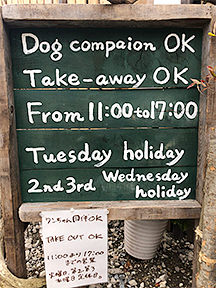 Dog compaion OK
Take-away OK
From 11:00 to 17:00
Tuesday holiday
2nd 3rd Wednesday holiday
ワンちゃん同伴OK
TAKE OUT OK
11:00より17:00
までの営業
火曜日、第2、第3
水曜日 定休日。